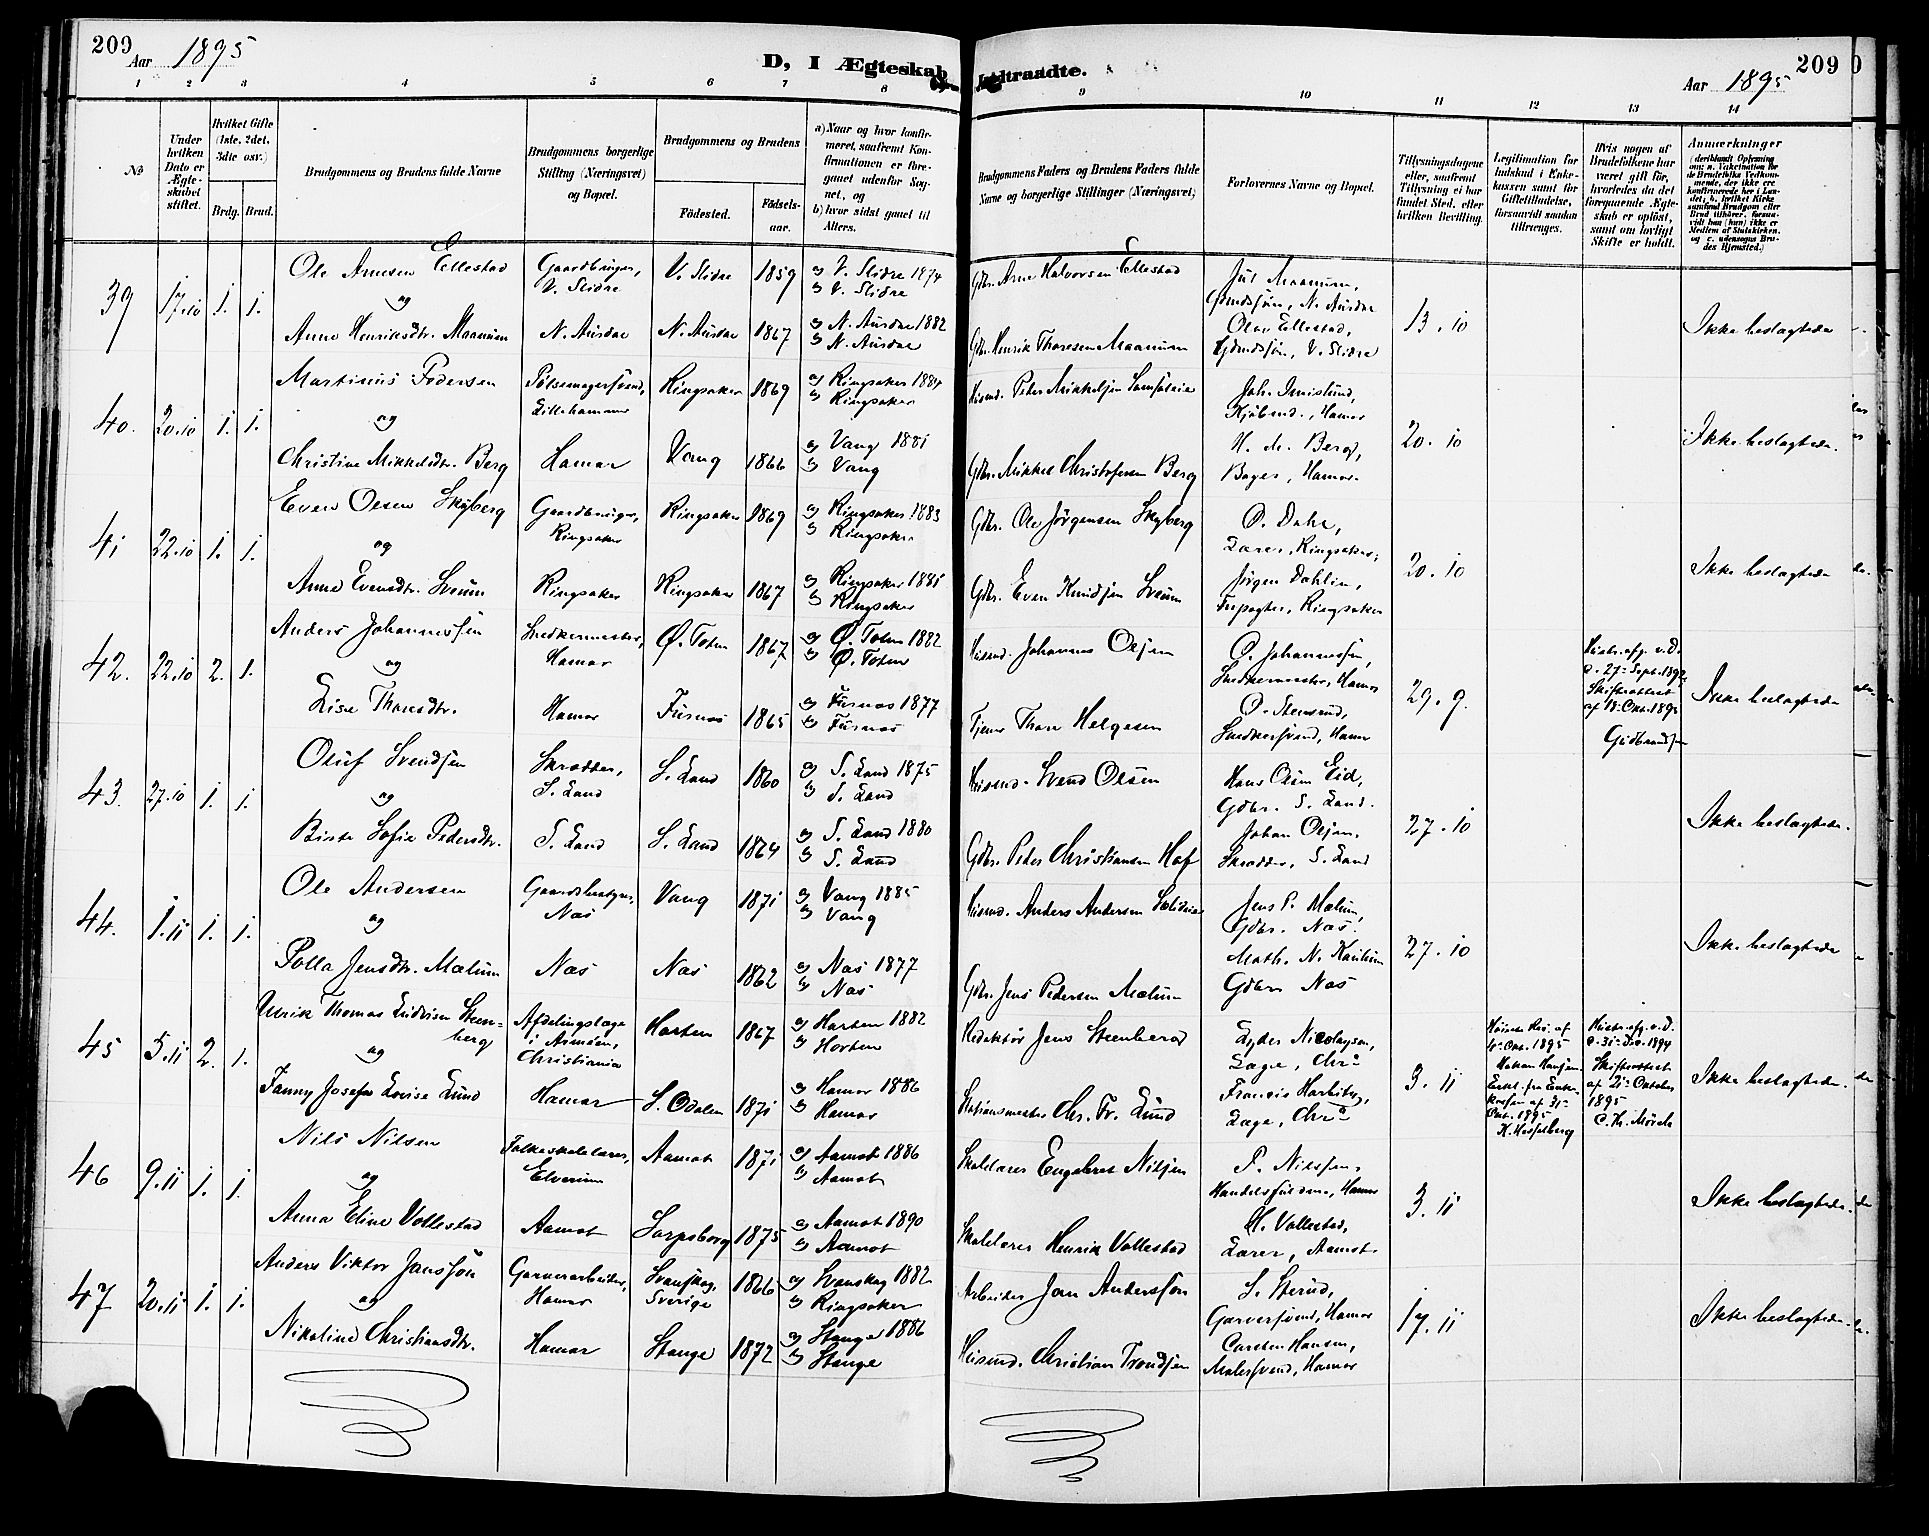 209
Aar 1895
D, I Ægteskab
Indtraadte.
209
Aar 1895
1 2 3 4 5 6 7 8 9 10 11 12 13 14
No
Under hvilken Dato er Ægteskabet stiftet.
Hvilket Gifte (1ste, 2det, 3die osv.)
Brdg. Brud.
Brudgommens og Brudens fulde Navne
Brudgommens borgerlige Stilling (Næringsvei) og Bopæl.
Brudgommens og Brudens
Fødested.
Fødselsaar.
a) Naar og hvor konfirmeret, saafremt Konfirmationen er foregaaet udenfor Sognet, og
b) hvor sidst gaaet til Alters.
Brudgommens Faders og Brudens Faders fulde Navne og borgerlige Stillinger (Næringsvei)
Forlovernes Navne og Bopæl.
Tillysningsdagene eller, saafremt Tillysning ei har fundet Sted, efter hvilken Bevilling.
Legitimation for Indskud i Enkekassen samt for Giftetilladelse, forsaavidt saadan tiltrænges.
Hvis nogen af Brudefolkene har været gift før, hvorledes da det foregaaende Ægteskab er opløst, samt om lovligt Skifte er holdt.
Anmerkninger
39 17.10 1. 1.
Ole Arnesen Ellestad
og
Anne Henriksdtr. Maanum
Gaardbruger, V. Slidre
N. Aurdal
V. Slidre 1859
N. Aurdal 1867
a) V. Slidre 1874
b) V. Slidre
a) N. Aurdal 1882
b) N. Aurdal
Gbr. Arne Halvorsen Ellestad
Gbr. Henrik Thoresen Maanum
Jul Maanum,
Gaardssøn, N. Aurdal
Olav Ellestad,
Gaardssøn, V. Slidre
13.10
Ikke beslægtede
40. 20.10 1. 1.
Martinus Pedersen
og
Christine Mikkelsdtr. Berg
Pølsemagersvend,
Lillehammer
Hamar
Ringsaker 1869
Vang 1866
a) Ringsaker 1884
b) Ringsaker
a) Vang 1881
b) Vang
Husmd. Peder Mikkelsen
Gbr. Mikkel Christofersen Berg
Joh. Imislund,
Kjøbmd., Hamar
H. M. Berg,
Bager, Hamar
20.10
Ikke beslægtede.
41 22.10 1. 1.
Even Olsen Skyberg
og
Anne Evensdtr. Sveum
Gaardbruger,
Ringsaker
Ringsaker
Ringsaker 1869
Ringsaker 1867
a) Ringsaker 1883
b) Ringsaker
a) Ringsaker 1881
b) Ringsaker
Gbr. Ole Jørgensen Skyberg
Gbr. Even Knudsen Sveum
O. Dahl,
Lærer, Ringsaker,
Jørgen Dahlin,
Forpagter, Ringsaker
20.10
Ikke beslægtede
42. 22.10 2. 1.
Anders Johannessen
og
Lise Thorsdtr.
Snedkermester,
Hamar
Hamar
Ø. Toten 1867
Furnæs 1865
a) Ø. Toten 1882
b) Ø. Toten
a) Furnæs 1877
b) Furnæs
Husmd. Johannes Olsen
Tjener Thore Helgesen
O. Johannessen,
Snedkermester, Hamar
O. Stensrud,
Snedkersvend, Hamar
29.9.
Gudbrandsen
Ikke beslægtede
43. 27.10 1. 1.
Oluf Svendsen
og
Birte Sofie Pedersdtr.
Skrædder,
S. Land
S. Land
S. Land 1860
S. Land 1864
a) S. Land 1875
b) S. Land
a) S. Land 1880
b) S. Land
Husmd. Svend Olsen
Gbr. Peder Christiansen Hof
Hans Olsen Eid,
Gdbr. S. Land.
Johan Olsen,
Skrædder, S. Land
27.10
Ikke beslægtede.
44. 1.11 1. 1.
Ole Andersen
og
Polla Jensdtr. Mælum
Gaardsbestyrer,
Næs
Næs
Vang 1871
Næs 1862
a) Vang 1885
b) Vang
a) Næs 1877
b) Næs
Husmd. Anders Andersen
Gbr. Jens Pedersen Mælum
Jens P. Mælum,
Gdbr. Næs.
Math. N.
Gdbr. Næs
27.10
Ikke beslægtede
45 5.11 2. 1.
Ulrik Thomas Ludvigsen Steenberg
og
Fanny Josefine Lovise Lund
Afdelingslæge
i Arméen,
Christiania
Hamar
Horten 1867
S. Odalen 1871
a) Horten 1882
b) Horten
a) Hamar 1886
b) Hamar
Redaktør Jens Steenberg
Stationsmester Chr. Fr. Lund
Lyder Nicolaysen,
Læge, Chra
Francis Harbitz,
Læge, Chra
3.11
K. Hesselberg
Hustr. afg. v. D.
d. 31. Dec. 1894
Skifteattest
af 21. Oktober
1895
C. Th. Mørch
Ikke beslægtede.
46 9.11 1. 1.
Nils Nilsen
og
Anna Eline Vollestad
Folkeskolelærer,
Elverum
Aamot
Aamot 1871
Sarpsborg 1875
a) Aamot 1886
b) Aamot
a) Aamot 1890
b) Aamot
Skolelærer Engebret Nilsen
Skolelærer Henrik Vollestad
P. Nilssen,
Handelsfuldm., Hamar
H. Vollestad,
Lærer, Aamot
3.11
Ikke beslægtede.
47 20.11 1. 1.
Anders Viktor Janssøn
og
Nikoline Christiansdtr.
Garverarbeider,
Hamar
Hamar
Svanskog,
Sverige 1866
Stange 1872
a) Svanskog 1882
b) Ringsaker
a) Stange 1886
b) Stange
Arbeider Jan Anderssøn
Husmd. Christian Trondsen
S. Sterud,
Garversvend, Hamar
Carsten Hansen,
Malersvend, Hamar
17.11
Ikke beslægtede.